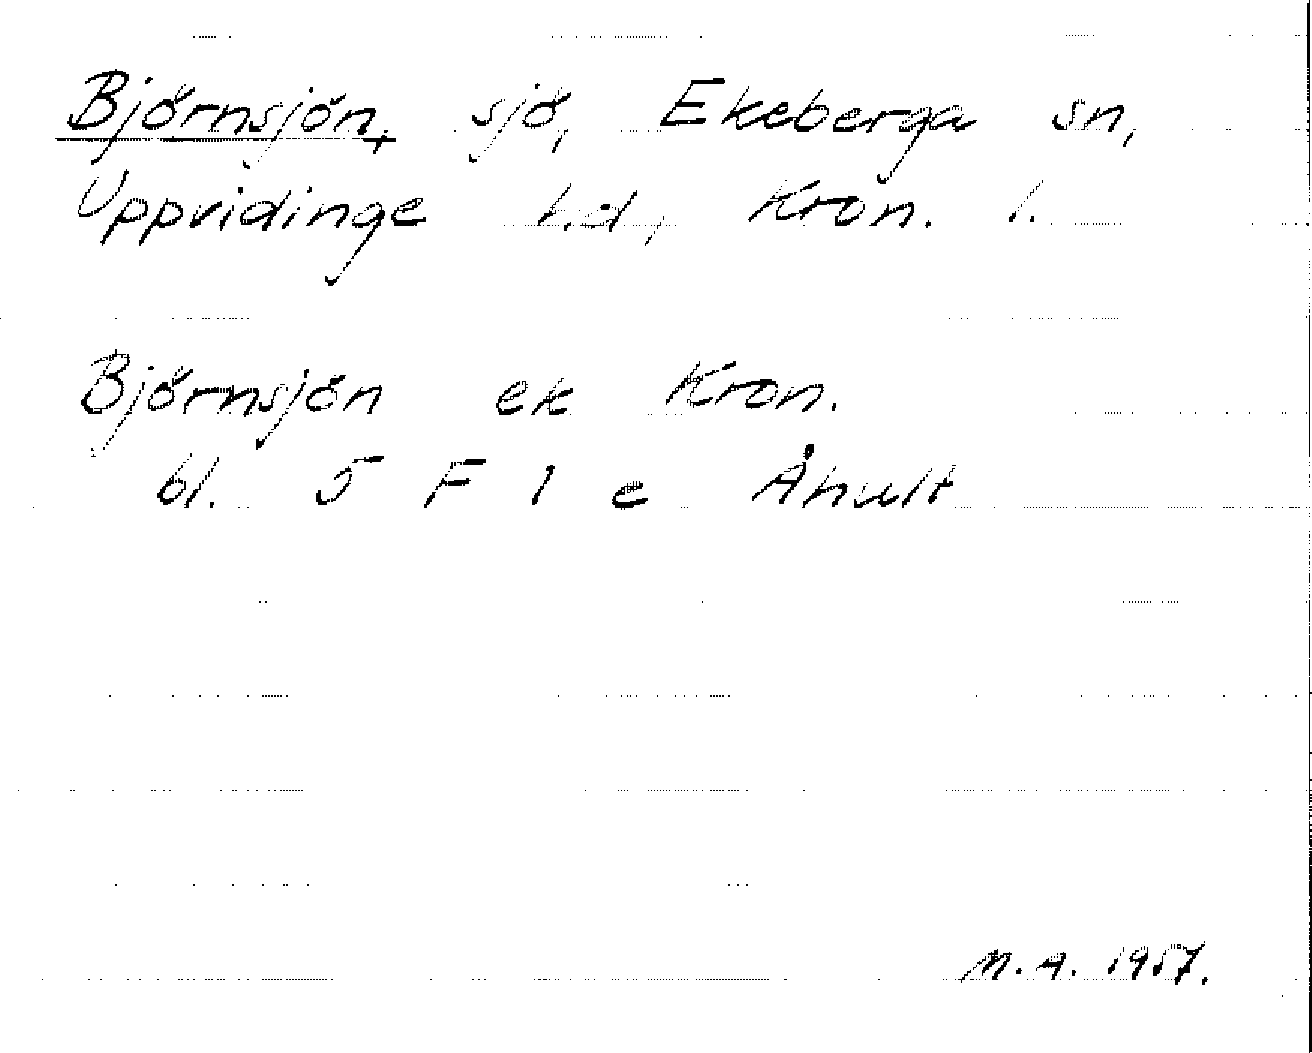 Björnsjön, sjö, Ekeberga sn,
Uppvidinge hd, Kron. l.
Björnsjön ek Kron.
bl. 5 F 1 e Åhult
M.A. 1957.